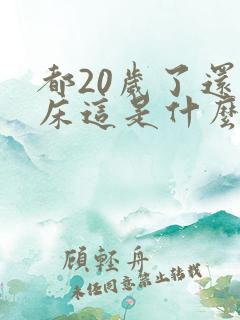 都20歲了還
床這是什麼
顧輕舟
未經同意禁止轉載